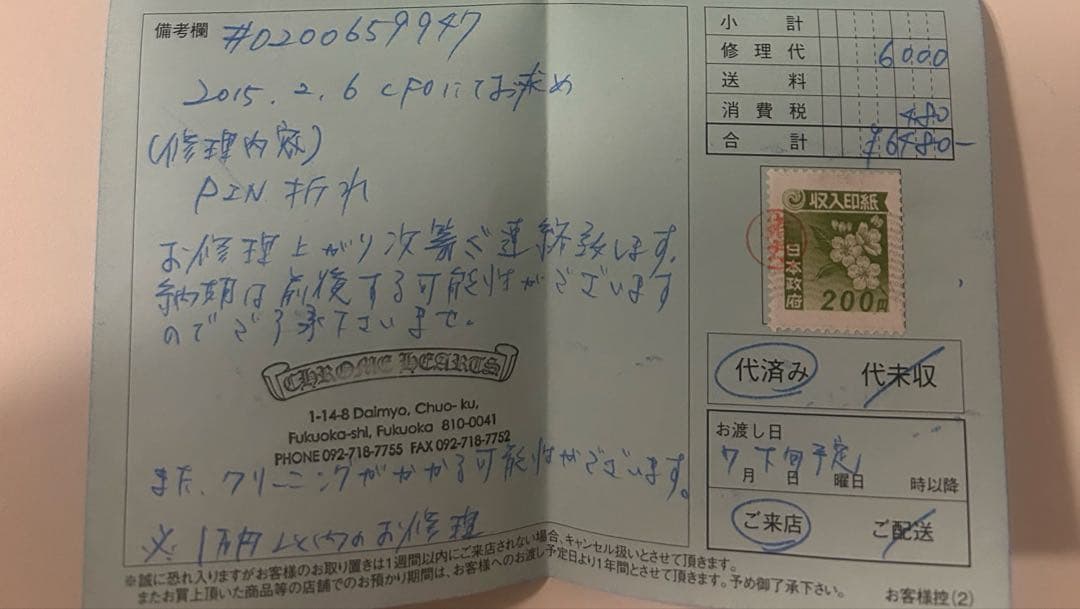 備考欄 #0200659947
2015.2.6 CFOにてお求め
(修理内容)
PIN 折れ
お修理上がり次第ご連絡致します。
納期は前後する可能性がございます
のでご了承下さいませ。
CHROME HEARTS
1-14-8 Daimyo, Chuo-ku,
Fukuoka-shi, Fukuoka 810-0041
PHONE 092-718-7755 FAX 092-718-7752
また、クリーニングがかかる可能性がございます。
※1万円 のお修理
小計
修理代 6000
送料
消費税 480
合計 ¥6480-
収入印紙
日本政府
200円
代済み 代未収
お渡し日
7月 下旬予定 日 曜日 時以降
ご来店 ご配送
※誠に恐れ入りますがお客様のお取り置きは1週間以内にご来店されない場合、キャンセル扱いとさせて頂きます。
またお買上頂いた商品等の店舗でのお預かり期間は、お客様へのお渡し予定日より1年間とさせて頂きます。予め御了承下さい。
お客様控(2)